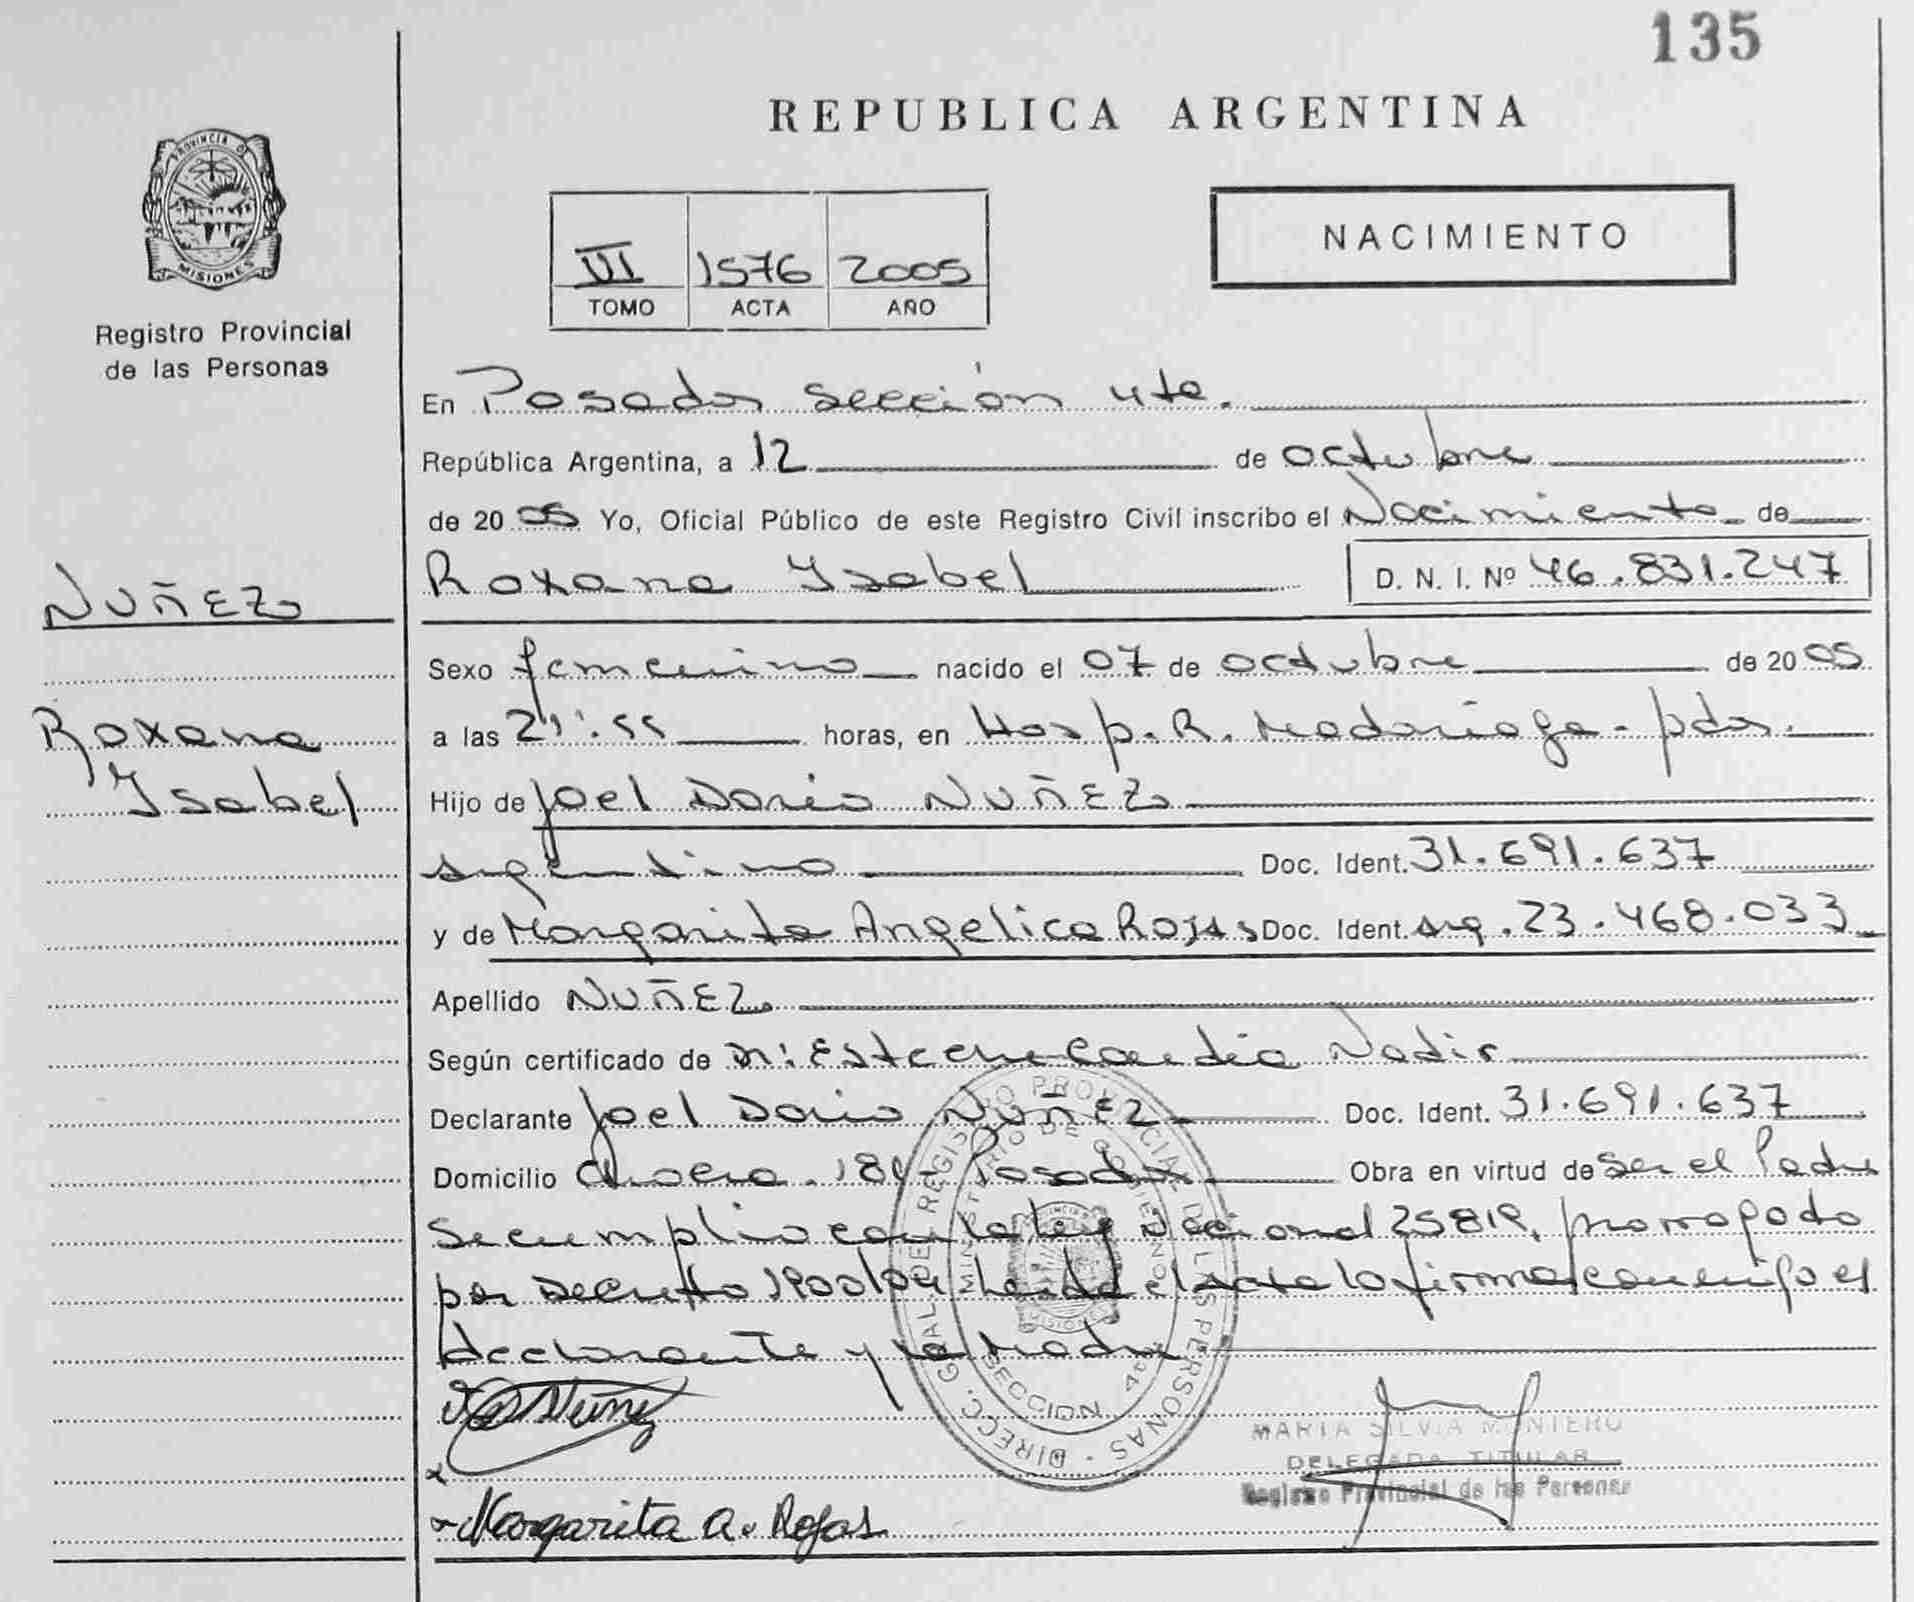 135
REPUBLICA ARGENTINA
PROVINCIA DE
MISIONES
Registro Provincial
de las Personas
NACIMIENTO
VI 1576 2005
TOMO ACTA AÑO
En Posadas sección 4ta.
República Argentina, a 12 de octubre
de 2005 Yo, Oficial Público de este Registro Civil inscribo el Nacimiento de
Roxana Ysabel D. N. I. Nº 46.831.247
NUÑEZ
Roxana
Ysabel
Sexo femenino nacido el 07 de octubre de 2005
a las 21:55 horas, en Hosp. R. Madariaga - pdas.
Hijo de Joel Dario NUÑEZ
argentino Doc. Ident. 31.691.637
y de Margarita Angelica ROJAS Doc. Ident. arg. 23.468.033
Apellido NUÑEZ
Según certificado de Nadir
Declarante Joel Dario NUÑEZ Doc. Ident. 31.691.637
Domicilio Posadas Obra en virtud de ser el Padre
Se cumplio con la ley Nacional 25819, prorrogado
por Decreto 1900/04 Leida el acta la firma conmigo el
declarante y la Madre
DIRECC. GRAL. DE REGISTRO PROVINCIAL DE LAS PERSONAS
MINISTERIO DE GOBIERNO
MISIONES
SECCION 4ª
Nuñez
Margarita A. Rojas
MARIA SILVIA MONTERO
DELEGADA TITULAR
Registro Provincial de las Personas